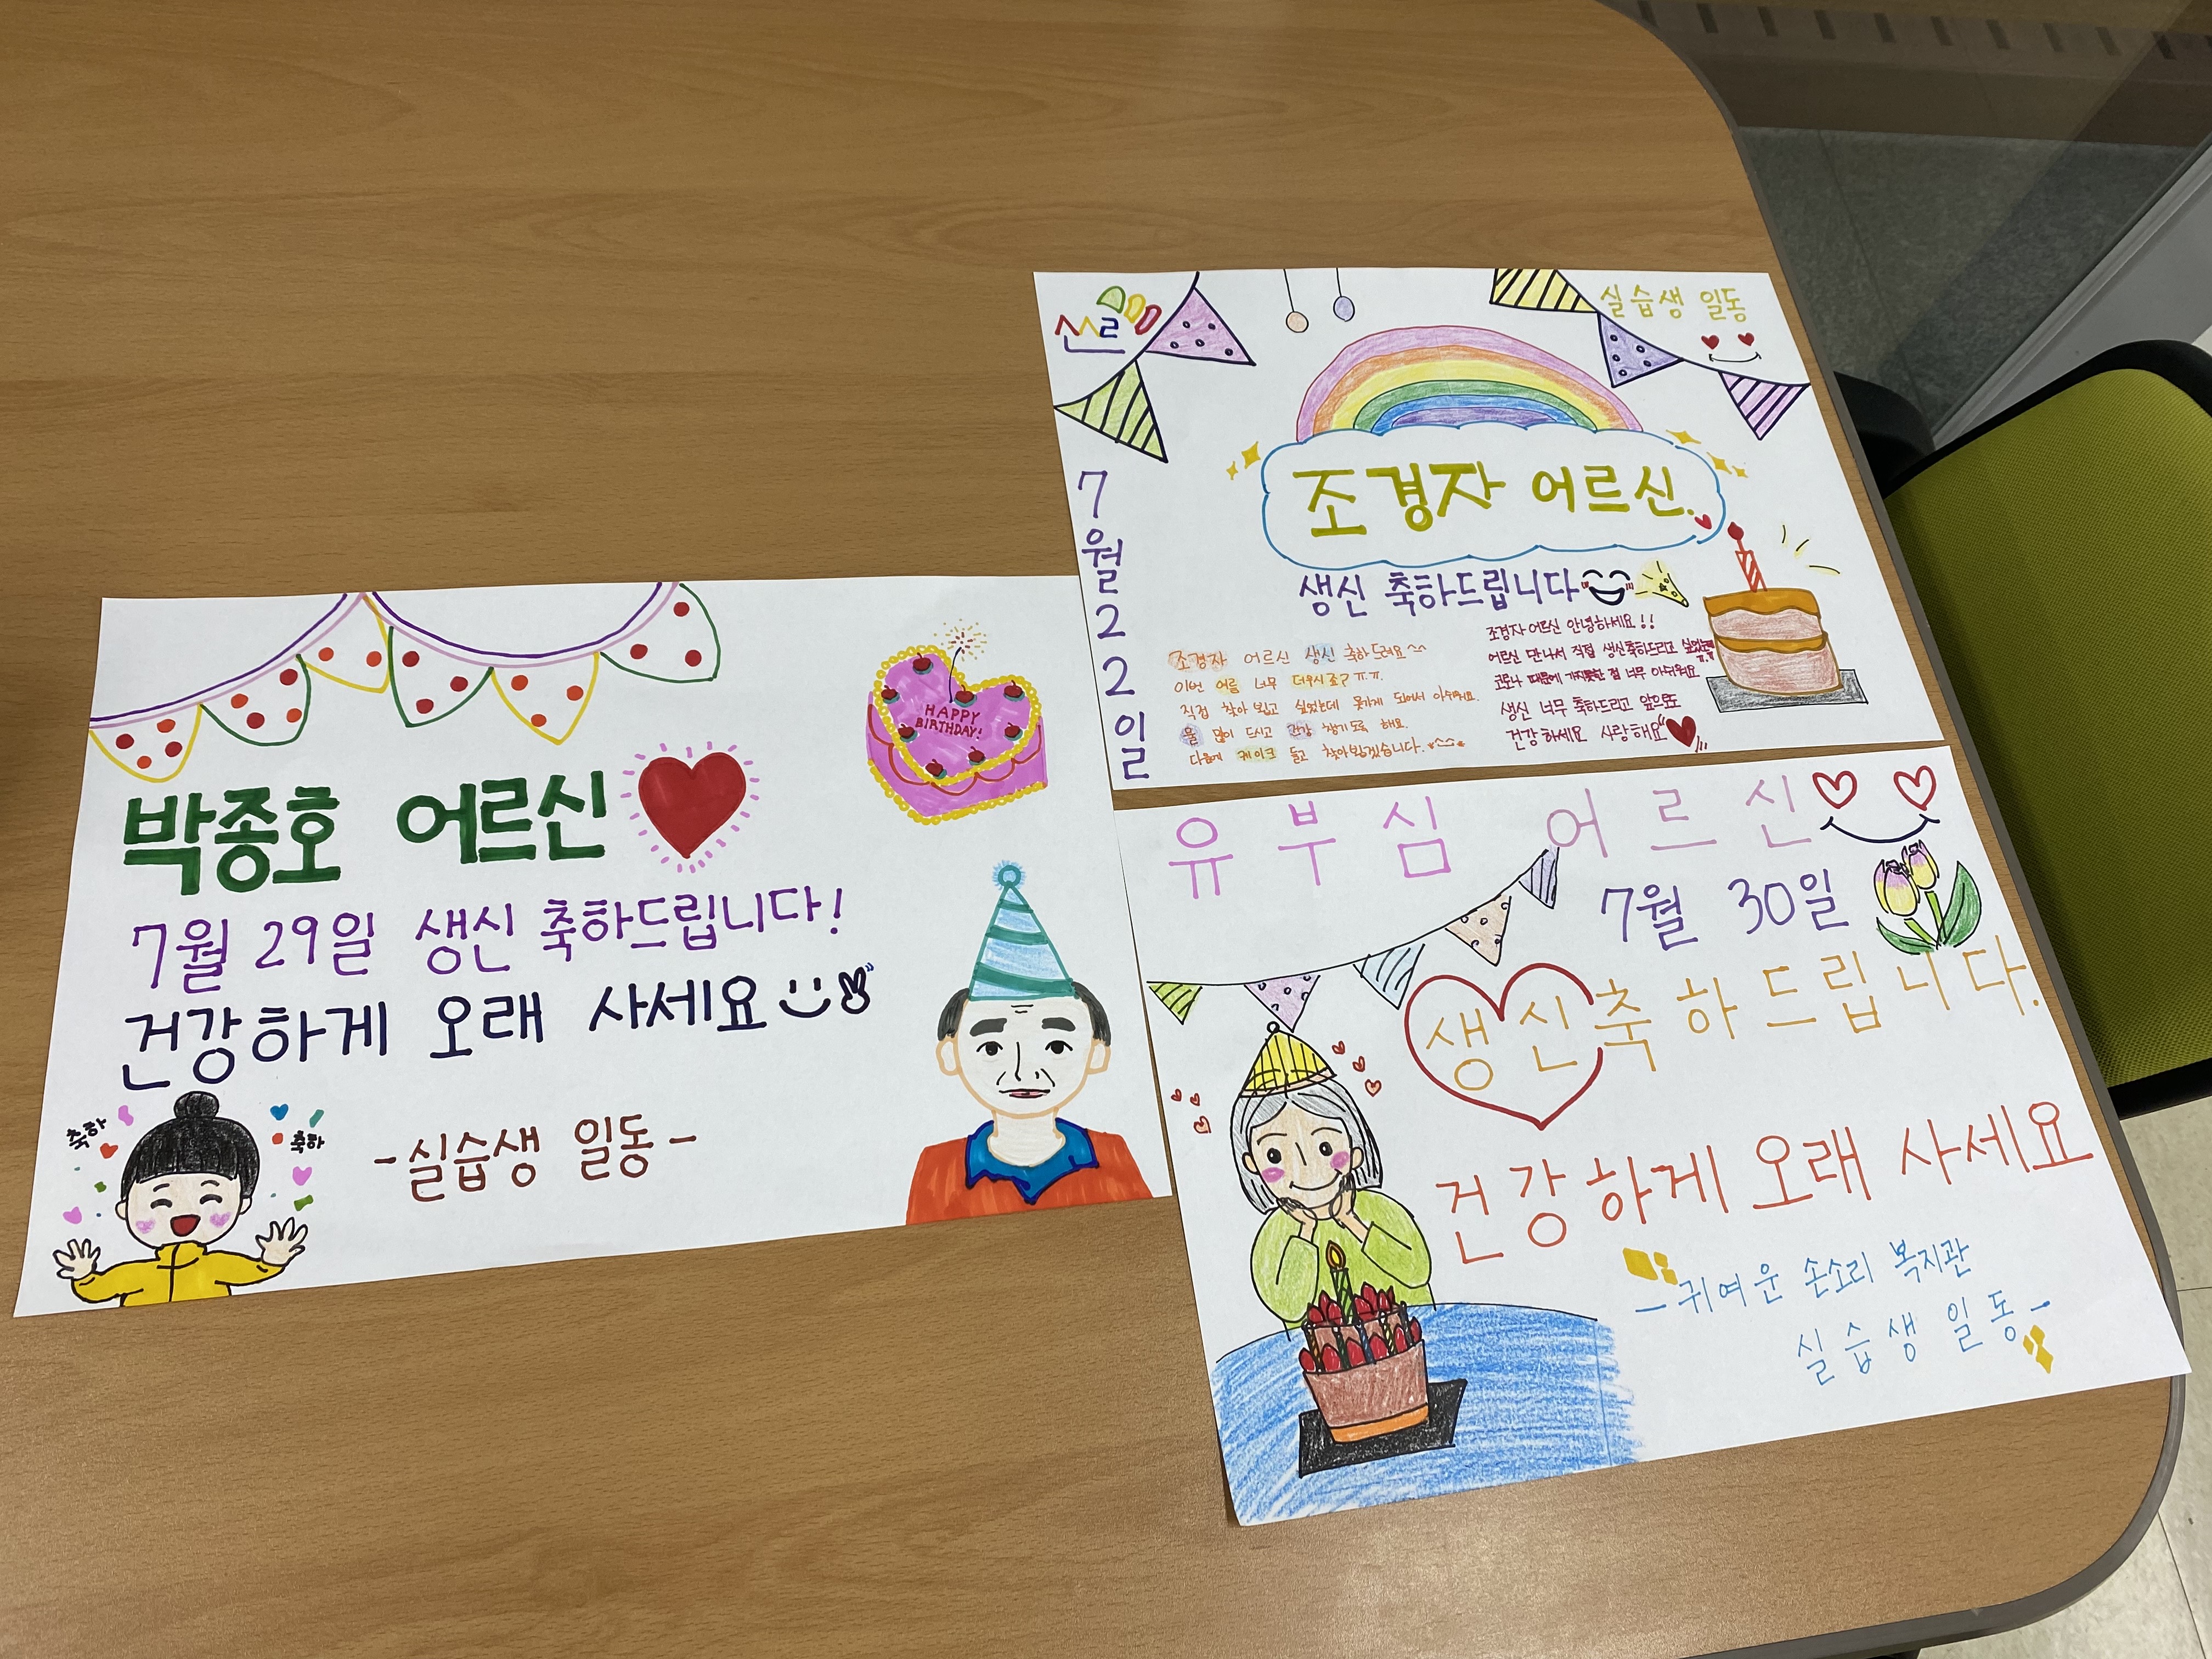 박종호 어르신
7월 29일 생신 축하드립니다!
건강하게 오래 사세요
축하
축하
-실습생 일동-
HAPPY
BIRTHDAY!
실습생 일동
7월22일
조경자 어르신
생신 축하드립니다
조경자 어르신 생신 축하드려요^^
이번 여름 너무 더우시죠? ㅠ.ㅠ.
직접 찾아 뵙고 싶었는데 못하게 되어서 아쉬워요.
물 많이 드시고 건강 챙기도록 해요.
다음에 케이크 들고 찾아뵙겠습니다.
조경자 어르신 안녕하세요!!
어르신 만나서 직접 생신축하드리고 싶었는데 ㅠ.ㅠ
코로나 때문에 가지못한 점 너무 아쉬워요
생신 너무 축하드리고 앞으로도
건강하세요 사랑해요
유부심 어르신
7월 30일
생신축하드립니다.
건강하게 오래 사세요
-귀여운 손소리 복지관
실습생 일동-